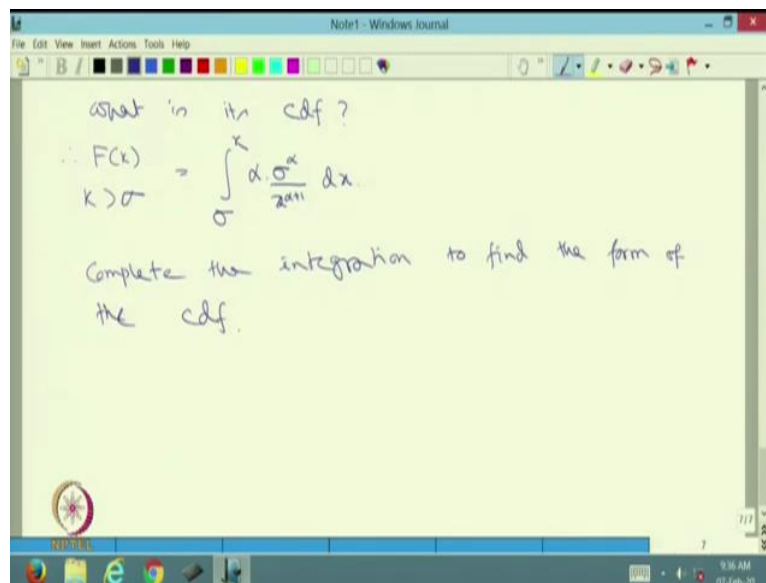 Note1 - Windows Journal
File Edit View Insert Actions Tools Help
B I
what is its cdf ?
∴ F(k) = ∫_σ^k α. σ^α / x^(α+1) dx.
k > σ
Complete the integration to find the form of
the cdf.
NPTEL
7/7
7
9:36 AM
07-Feb-20